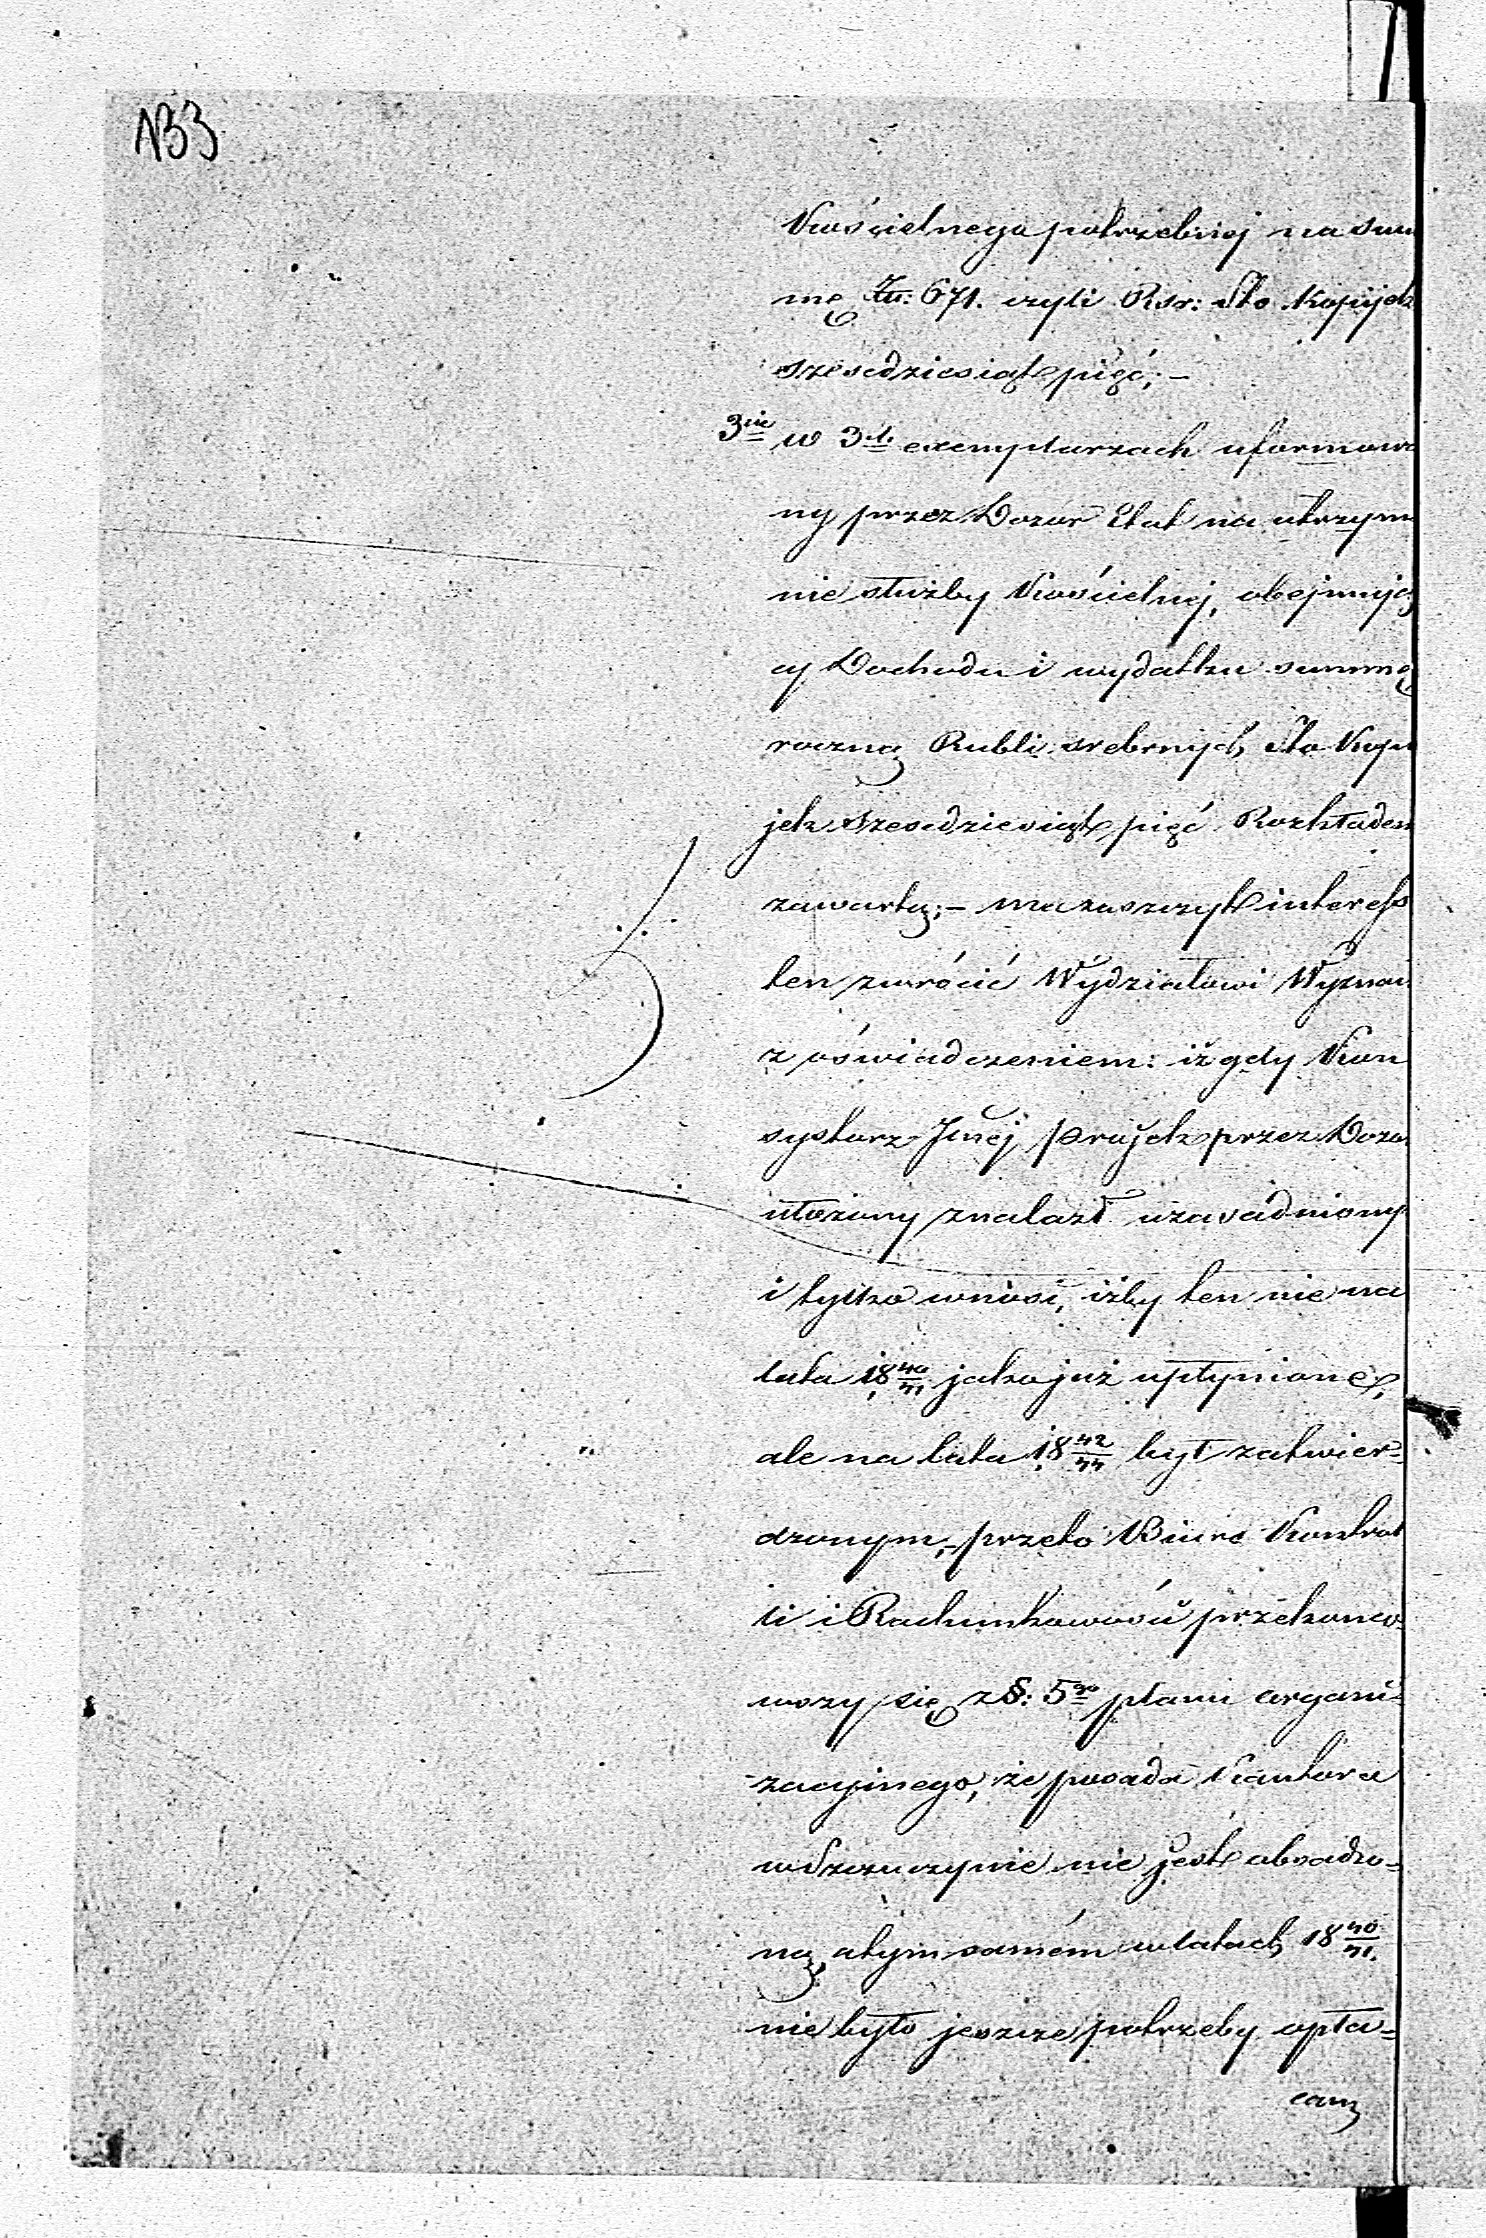 133
Kościelnego potrzebnej na sum
mę Zło: 671. czyli Rsr: Sto Kopijek
sześcdziesiąt pięć; –
3cie w 3ch exemplarzach uformowa
ny przez Dozór Etat na utrzyma
nie służby Kościelnej, obejmują
cy Dochodu i wydatku summę
roczną Rubli srebrnych Sto Kopi
jek sześcdziesiąt pięć Rozkładem
zawartą; – ma zaszczyt interess
ten zwrócić Wydziałowi Wyznań
z oświadczeniem: iż gdy Kon
systorz Jńej projekt przez Dozór
ułożony znalazł uzasadniony
i tylko wnosi, iżby ten nie na
lata 18 40/41 jako już upłynione,
ale na lata 18 42/44 był zatwier-
dzonym, – przeto Biuro Kontrol
li i Rachunkowości przekonaw-
wszy się z §: 5go planu organi-
zacyinego, że posada Kantora
w Szczuczynie nie jest obsadzo-
ną, a tym samém w latach 18 40/41.
nie było jeszcze potrzeby opła-